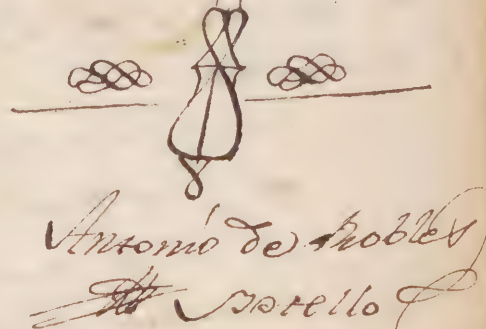 Antonio de Robles
Sorello